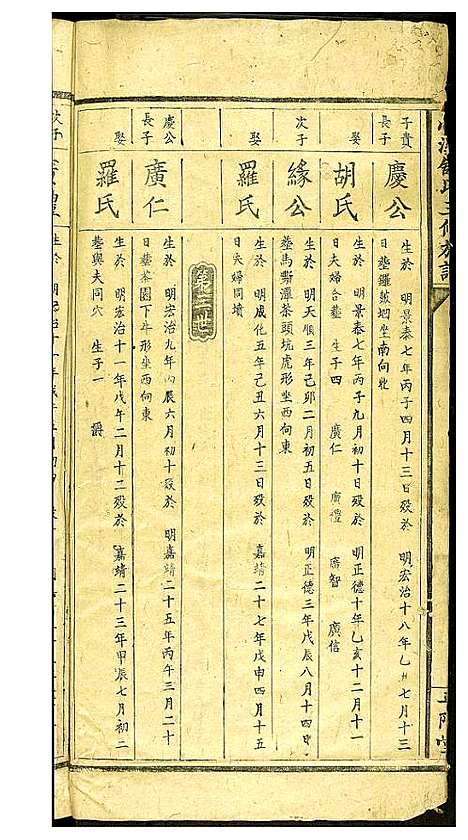 子貴
長子
慶公
生於　明景泰七年丙子四月十三日殁於　明宏治十八年乙丑七月十三
日塟羅鼓蛔坐南向北
娶
胡氏
生於　明景泰七年丙子九月初十日殁於　明正德十年乙亥十二月十一
日夫婦合塟　生子四　廣仁　廣禮　廣智　廣信
次子
緣公
生於　明天順三年己卯二月初五日殁於　明正德三年戊辰八月十四日
塟馬嘶潭茶頭坑虎形坐西向東
娶
羅氏
生於　明成化五年己丑六月十三日殁於　嘉靖二十七年戊申四月十五
日夫婦同墳
第三世
慶公
長子
廣仁
生於　明宏治九年丙辰六月初十殁於　明嘉靖二十五年丙午三月二十
日塟茶園下斗形坐西向東
娶
羅氏
生於　明宏治十一年戊午二月十二殁於　嘉靖二十三年甲辰七月初二
塟與夫同穴　生子一　爵
次子